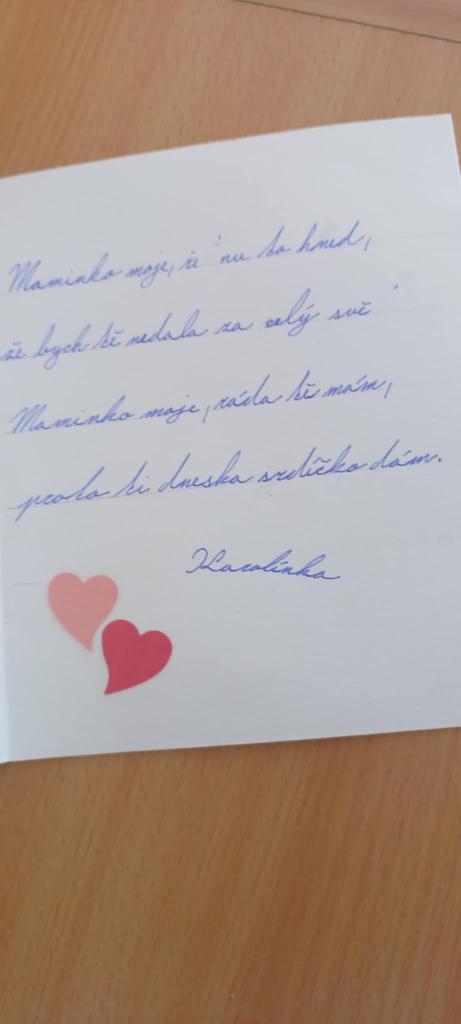 Maminko moje, ti to hned,
že bych tě nedala za celý
Maminko moje, ráda tě mám,
proto ti dneska srdíčko dám.
Karolínka